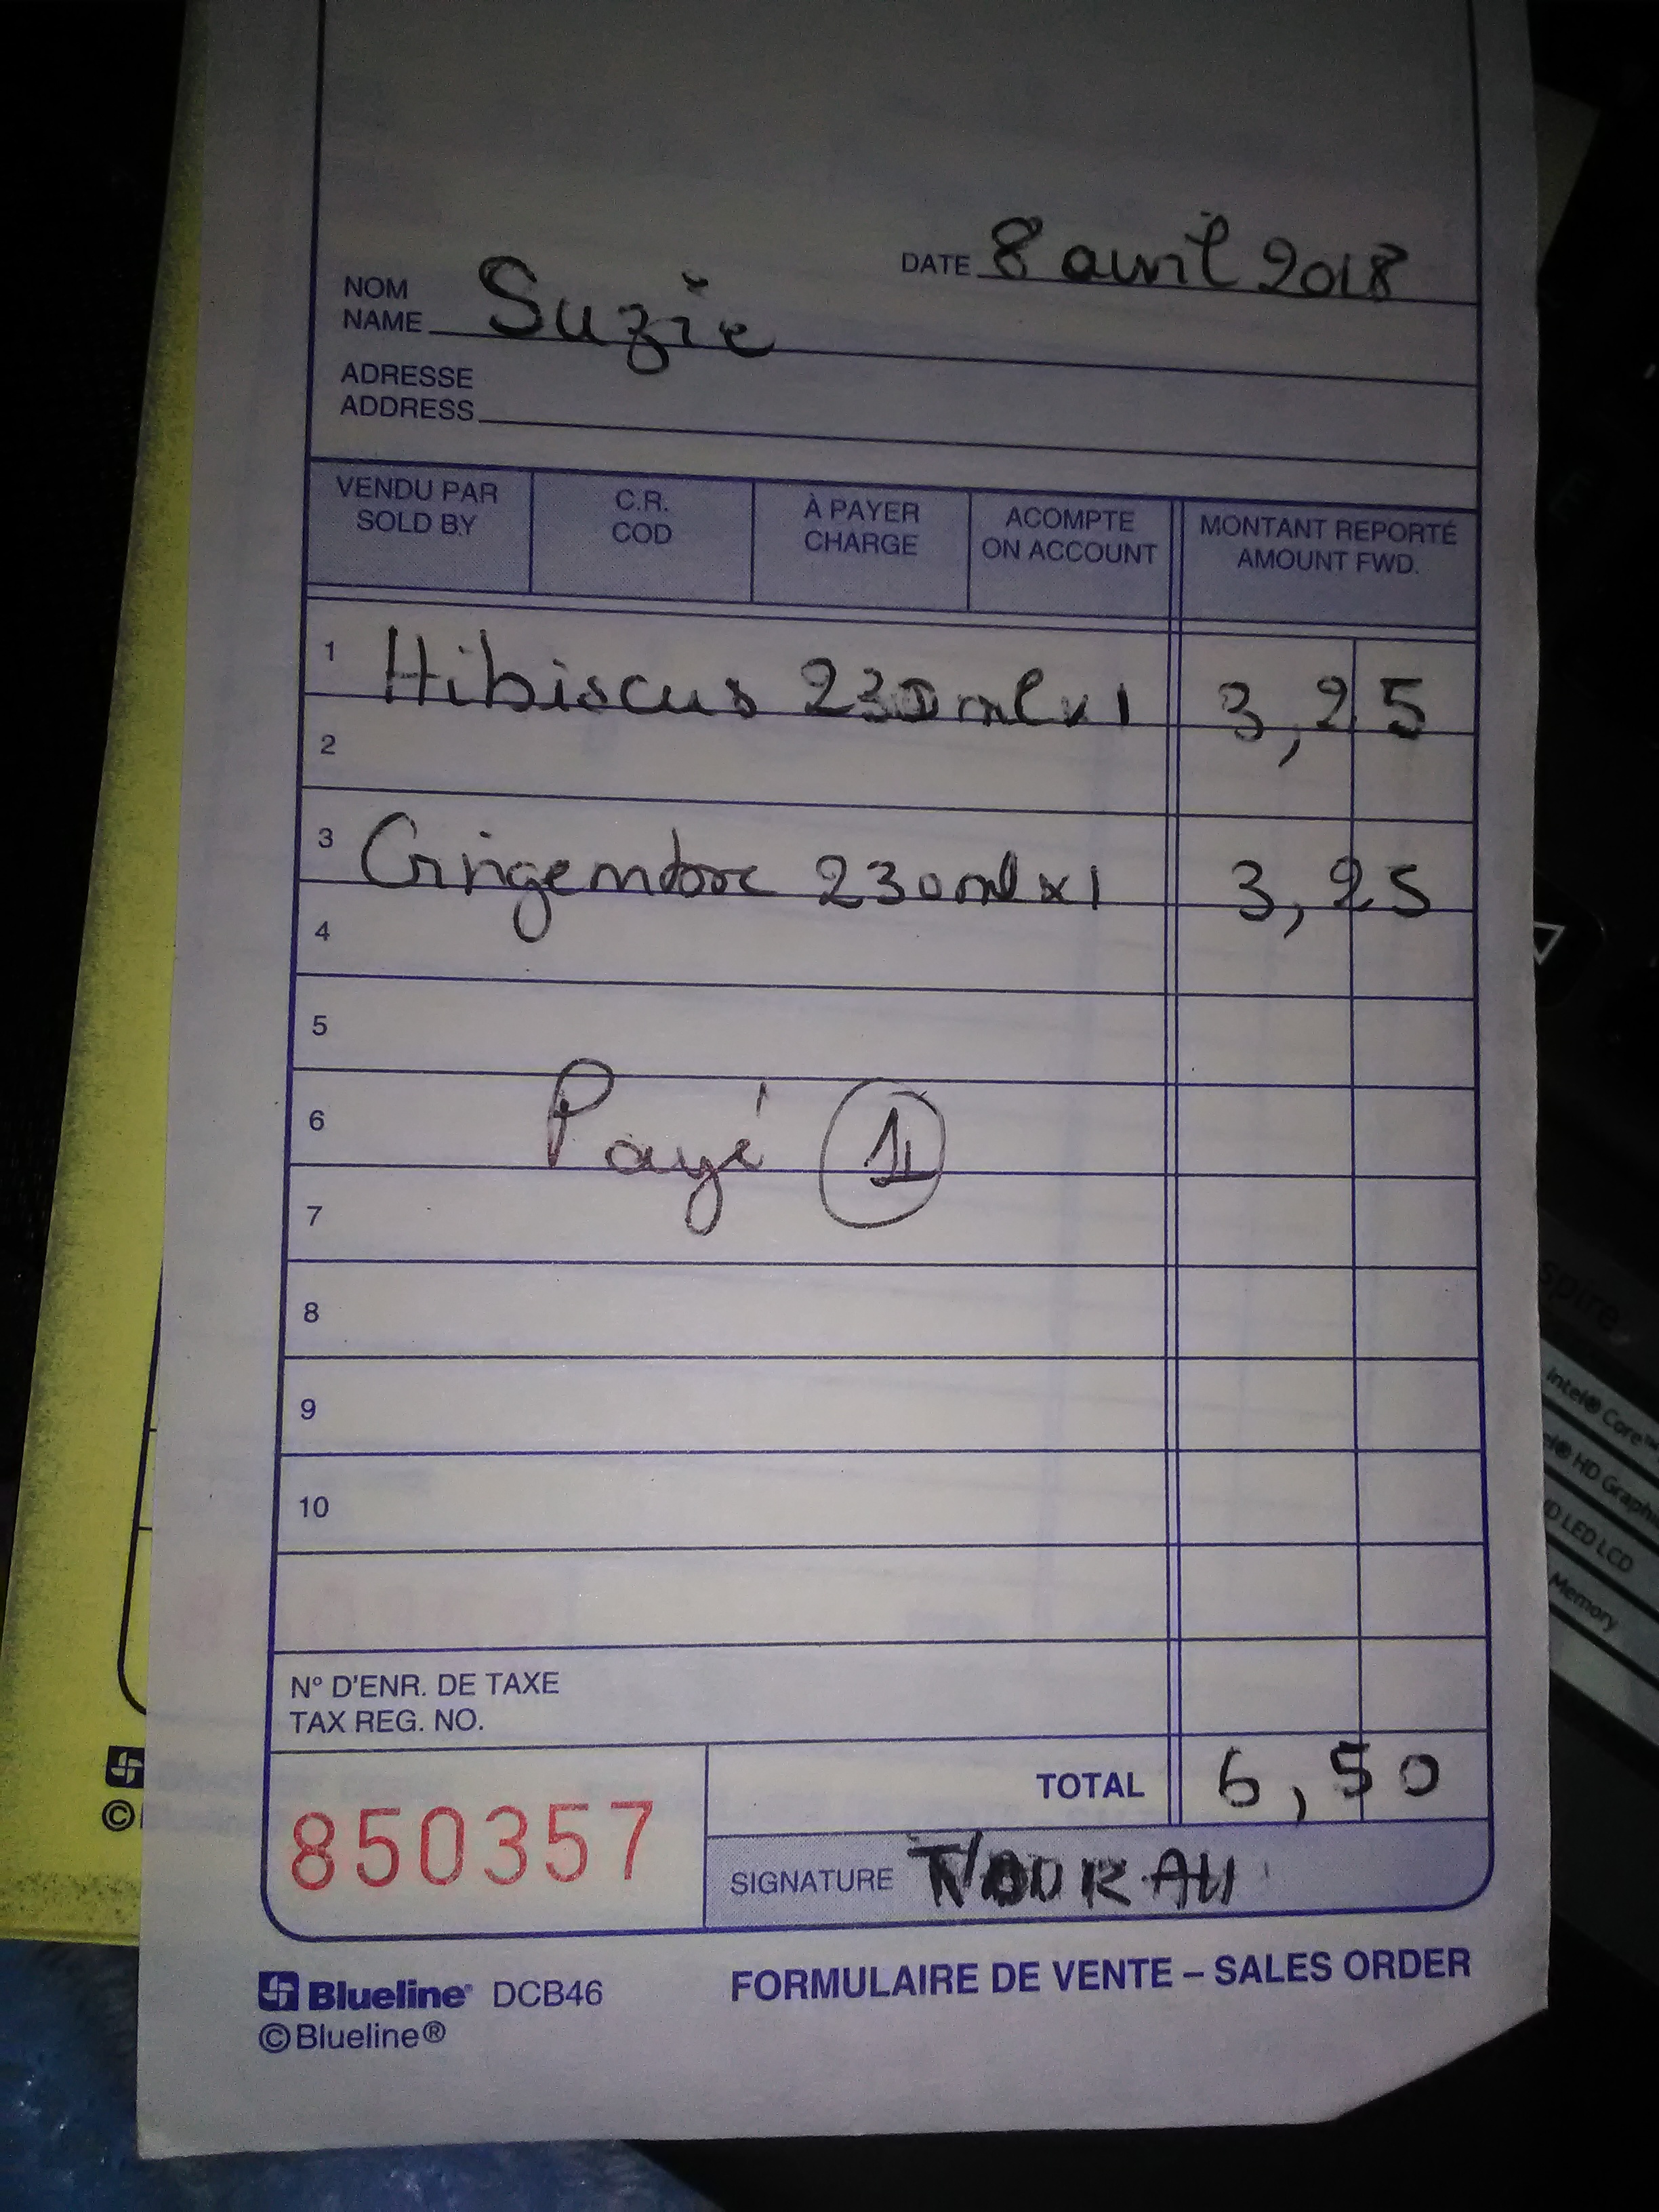 DATE 8 avril 2018
NOM
NAME Suzie
ADRESSE
ADDRESS
VENDU PAR
SOLD BY
C.R.
COD
À PAYER
CHARGE
ACOMPTE
ON ACCOUNT
MONTANT REPORTÉ
AMOUNT FWD.
1 Hibiscus 230ml x1 3,25
2
3 Gingembre 230ml x1 3,25
4
5
6 Payé
7
8
9
10
N° D'ENR. DE TAXE
TAX REG. NO.
TOTAL 6,50
850357
SIGNATURE
Blueline DCB46
©Blueline®
FORMULAIRE DE VENTE – SALES ORDER
intel® Core™
HD Graph
LED LCD
Memory